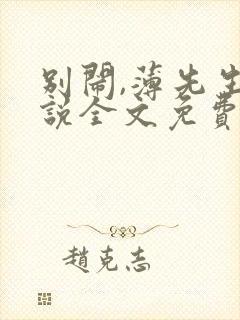 別鬧,薄先生
說全文免費
趙克志